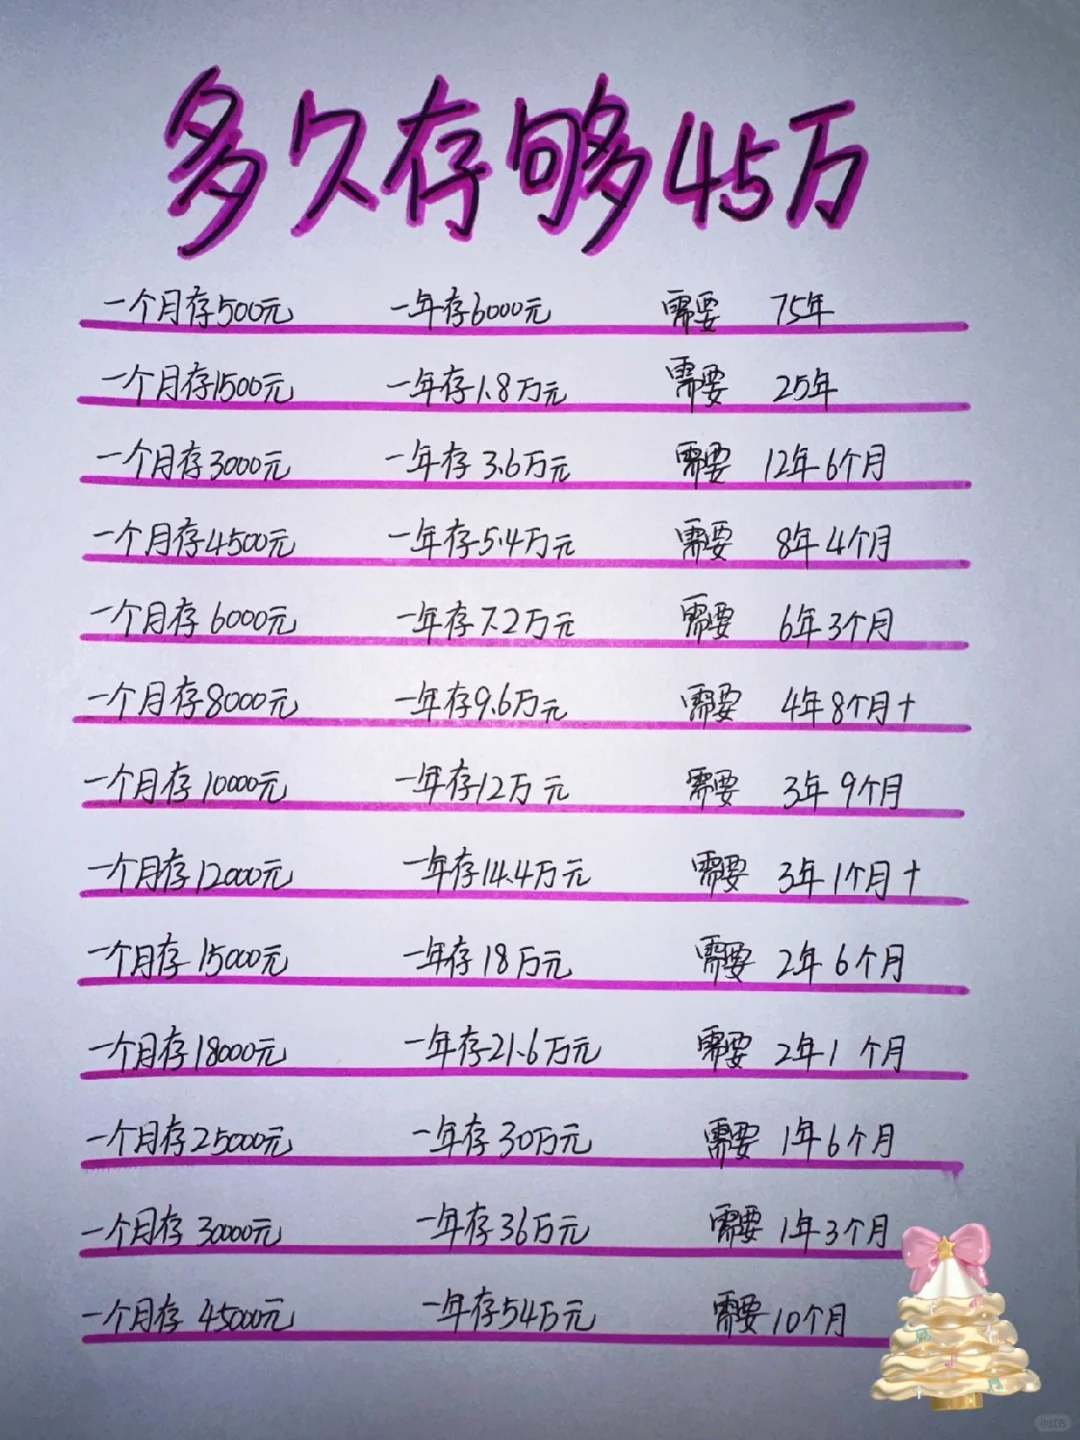 多久存够45万
一个月存500元 一年存6000元 需要 75年
一个月存1500元 一年存1.8万元 需要 25年
一个月存3000元 一年存3.6万元 需要 12年6个月
一个月存4500元 一年存5.4万元 需要 8年4个月
一个月存6000元 一年存7.2万元 需要 6年3个月
一个月存8000元 一年存9.6万元 需要 4年8个月+
一个月存10000元 一年存12万元 需要 3年9个月
一个月存12000元 一年存14.4万元 需要 3年1个月+
一个月存15000元 一年存18万元 需要 2年6个月
一个月存18000元 一年存21.6万元 需要 2年1个月
一个月存25000元 一年存30万元 需要 1年6个月
一个月存30000元 一年存36万元 需要 1年3个月
一个月存45000元 一年存54万元 需要 10个月
小红书